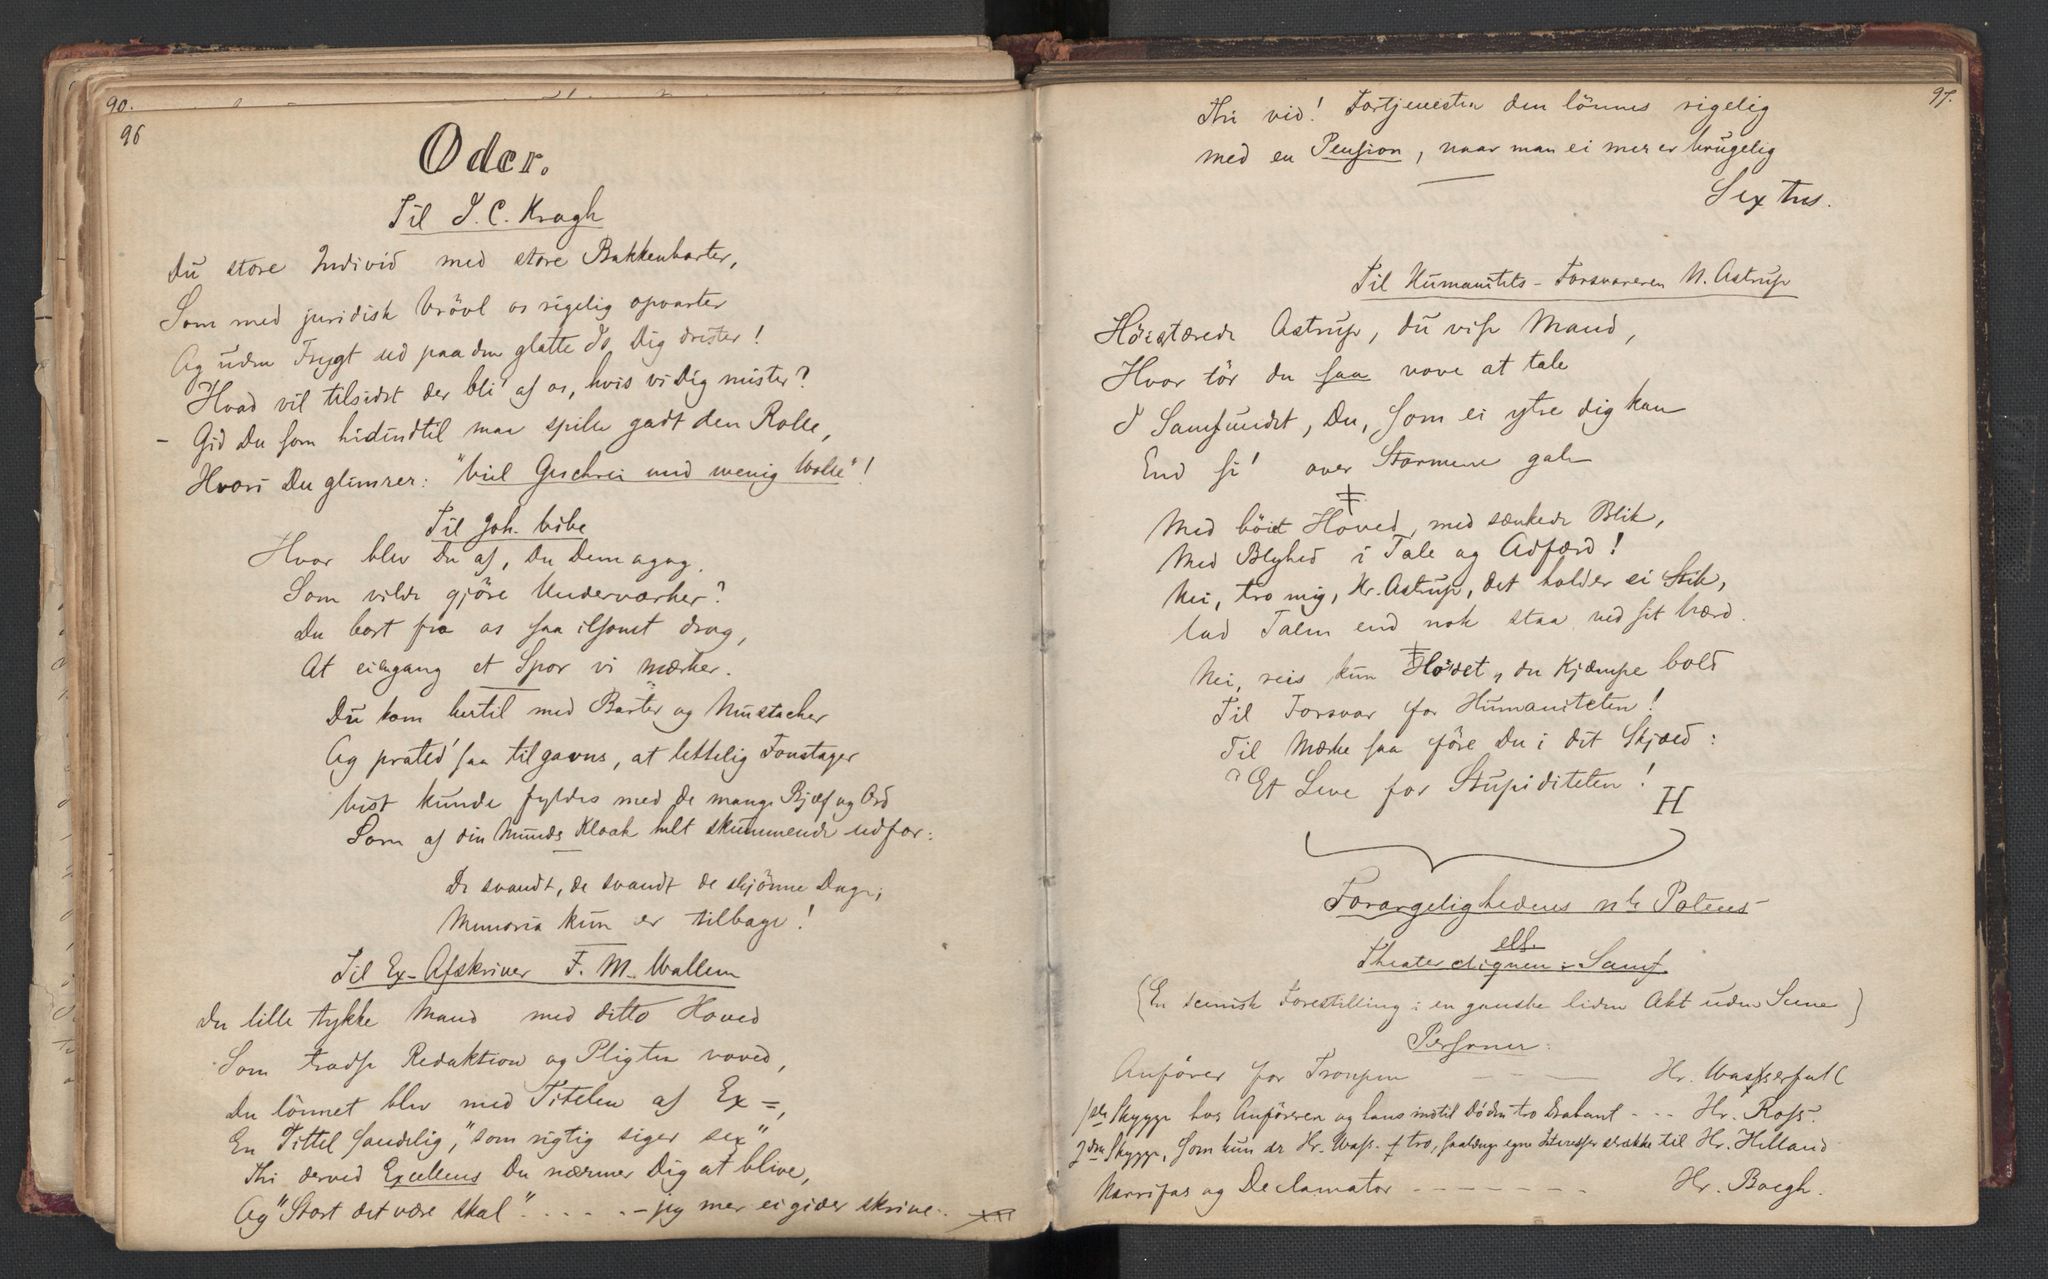 90.
96
Oder.
Til J. C. Kragh
Du store Individ med store Bakkenbarter,
Som med juridisk Vrövl os rigelig opvarter
Og uden Frygt ud paa den glatte Is Dig drister!
Hvad vil tilsidst der bli' af os, hvis vi Dig mister?
– Gid Du som hidindtil maa spille godt den Rolle,
Hvori Du glimrer: "Viel Geschrei und wenig Wolle"!
Til Joh. Vibe
Hvor blev Du af, Du Demagog,
Som vilde gjöre Underværker?
Du bort fra os saa ilsomt drog,
At ei engang et Spor vi mærker.
Du kom hertil med Barter og Mustacher
Og prated' saa tilgavns, at lettelig Foustager
Vist kunde fyldes med de mange Bjæf og Ord
Som af din Munds Kloak helt skummende udfor:
De svandt, de svandt de skjönne Dage,
Memoria kun er tilbage!
Til Ex-Afskriver F. M. Wallem
Du lille tykke Mand med ditto Hoved
Som trods Redaktion og Pligten voved,
Du lönnet blev med Titelen af Ex =,
En Tittel sandelig, "som rigtig siger sex",
Thi derved Excellens Du nærmer Dig at blive,
Og "Stort det være skal" . . . . . – jeg mer ei gider skrive.
97.
Thi vid! Fortjenesten den lönnes rigelig
med en Pension, naar man ei mer er brugelig
Sextus.
Til Humanitets-Forsvareren N. Astrup
Höistærede Astrup, du vise Mand,
Hvor tör du saa vove at tale
I Samfundet, Du, som ei ytre dig kan
End si' over Stormene gale
Med böiet Hoved, med sænkede Blik,
Med Blyhed i Tale og Adfærd!
Nei, tro mig, Hr. Astrup, det holder ei Stik,
Lad Talen end nok staa ved sit Værd.
Nei, reis kun Ho'det, du Kjæmpe bold
Til Forsvar for Humaniteten!
Til Mærke saa före Du i dit Skjold:
"Et Leve for Stupiditeten!
H
Forargelighedens nte Potens
ell.
Theaterdiguen i Samf.
(En scenisk Forestilling i en ganske liden Akt uden Scene)
Personer:
Anförer for Troupen – – – Hr. Wasserfall
1ste Skygge hos Anföreren og hans indtil Döden tro Drabant - - - Hr. Ross.
2den Skygge, som kun er Hr. Wass. tro, saalænge egne Interesser strække til Hr. Helland
Narrifas og Declamator – – – – – – Hr. Boegh.